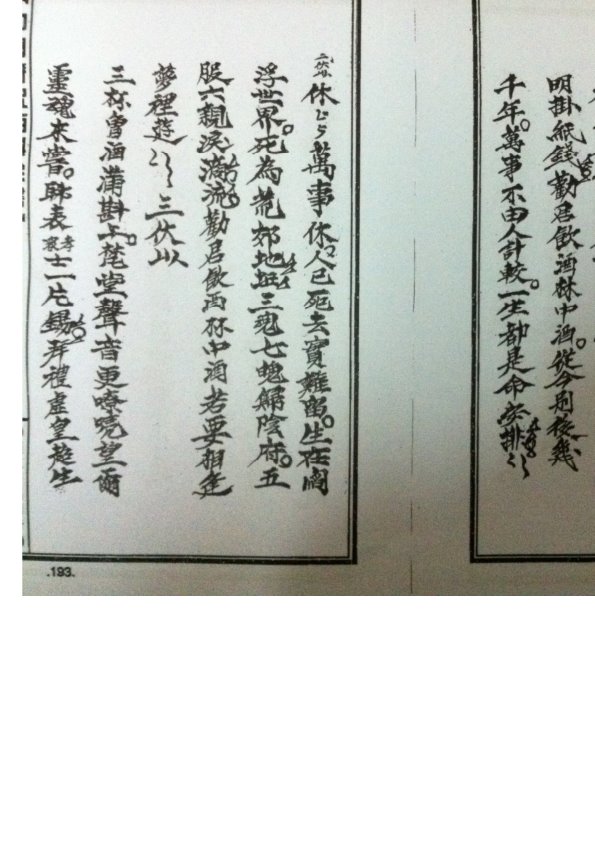 明掛紙錢勸君飲酒杯中酒。從今別後幾
千年。萬事不由人計較。一生都是命安排
休 萬事休 人已死去實難留。生在閻
浮世界。死為荒郊地 三魂七魄歸陰府。五
服六親淚滴流勸君飲酒杯中酒若要相逢
夢裡遊 三伏以
三杯曾酒滿斟上。堂聲音更嘹喨望爾
靈魂來嘗。聊表 士一片 拜禮虛皇超生
.193.